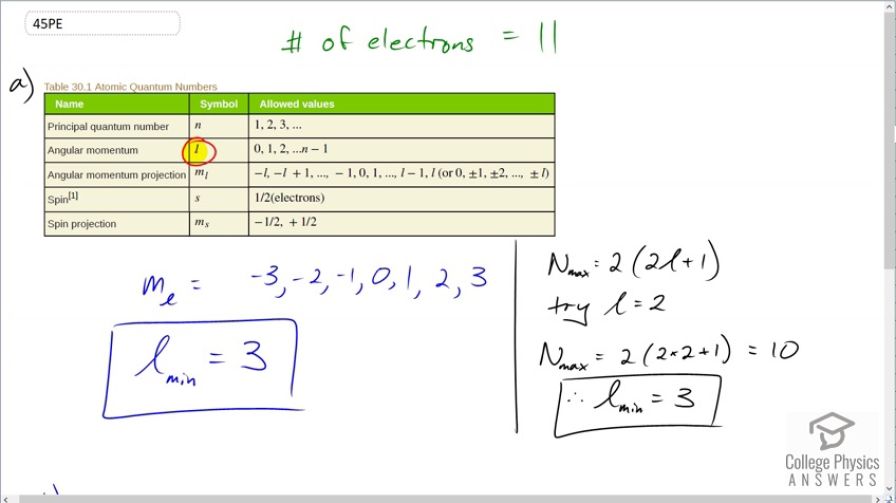 45PE
# of electrons = 11
a)
Table 30.1 Atomic Quantum Numbers
Name Symbol Allowed values
Principal quantum number n 1, 2, 3, ...
Angular momentum l 0, 1, 2, ...n − 1
Angular momentum projection m_l −l, −l + 1, ..., − 1, 0, 1, ..., l − 1, l (or 0, ±1, ±2, ..., ± l)
Spin[1] s 1/2(electrons)
Spin projection m_s −1/2, + 1/2
m_l = -3, -2, -1, 0, 1, 2, 3
l_min = 3
N_max = 2(2l+1)
try l = 2
N_max = 2(2×2+1) = 10
∴ l_min = 3
College Physics
ANSWERS